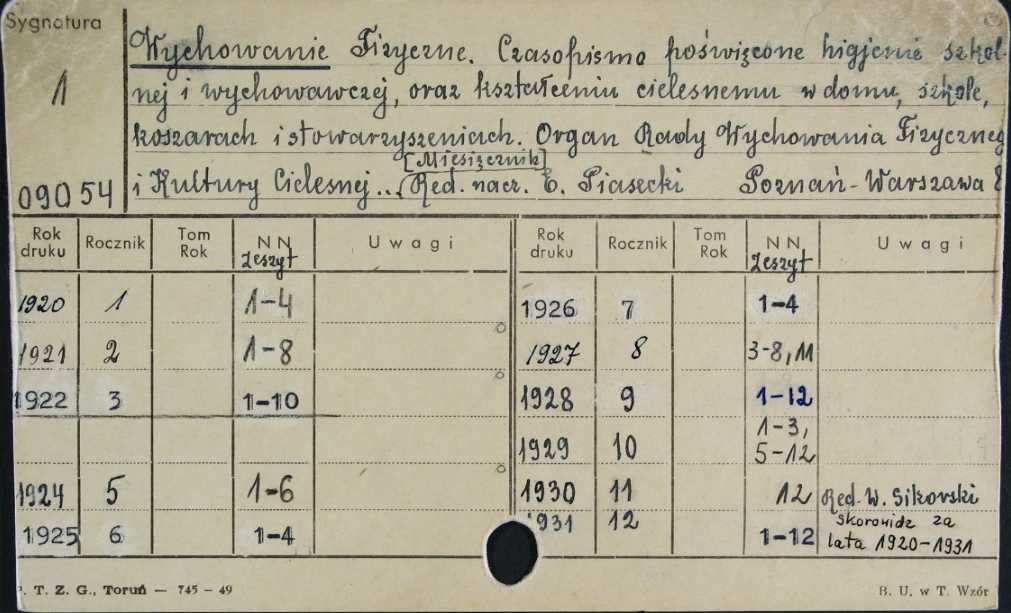 Sygnatura
1
09054
Wychowanie Fizyczne. Czasopismo poświęcone higjenie szkol-
nej i wychowawczej, oraz kształceniu cielesnemu w domu, szkole,
koszarach i stowarzyszeniach. Organ Rady Wychowania Fizyczneg
[Miesięcznik]
i Kultury Cielesnej... Red. nacz. E. Piasecki Poznań-Warszawa
Rok druku Rocznik Tom Rok NN Zeszyt Uwagi Rok druku Rocznik Tom Rok NN Zeszyt Uwagi
1920 1 1-4 1926 7 1-4
1921 2 1-8 1927 8 3-8, 11
1922 3 1-10 1928 9 1-12
1929 10 1-3, 5-12
1924 5 1-6 1930 11 12 Red. W. Sikorski
1925 6 1-4 1931 12 1-12 Skorowidz za lata 1920-1931
. T. Z. G., Toruń — 745 - 49 B. U. w T. Wzór